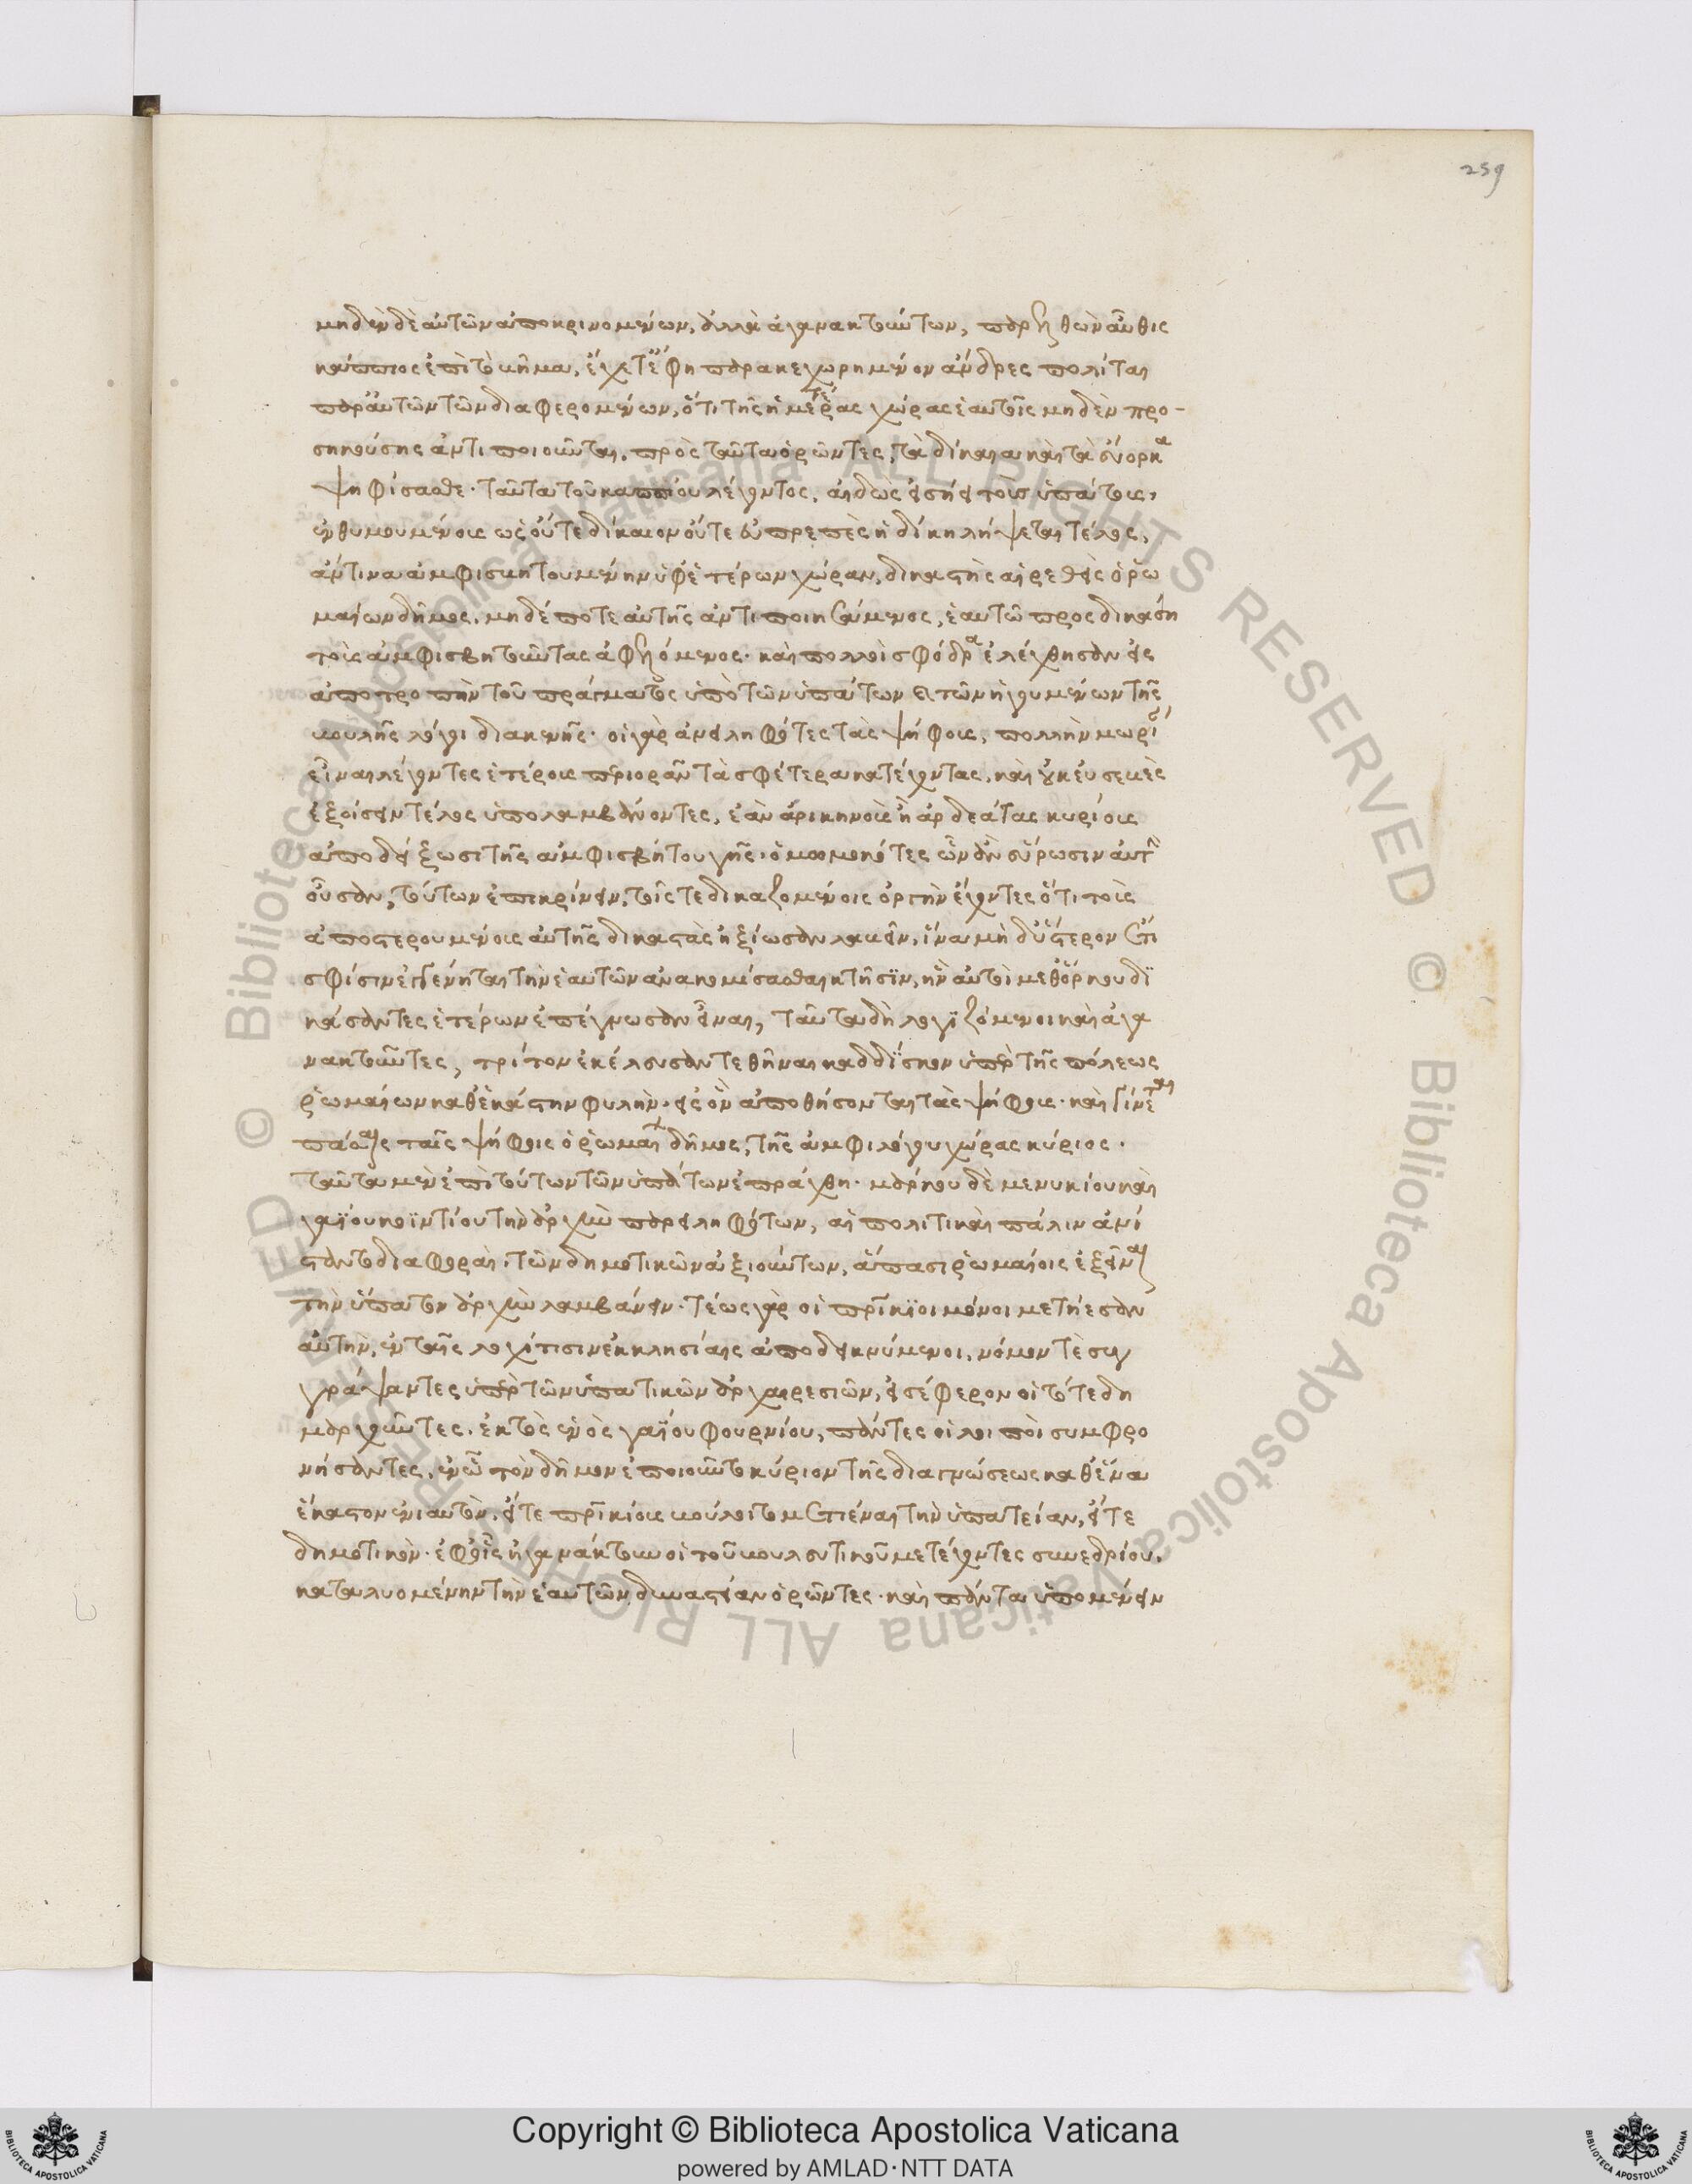 259
μηδὲν δὲ αὐτῶν ἀποκρινομένων, ἀλλὰ ἀγανακτούντων, παρελθὼν αὖθις
κάππιος ἐπὶ τὸ βῆμα, ἔχετε ἔφη παρακεχωρημένον ἄνδρες πολίται
παρ' αὐτῶν τῶν διαφερομένων, ὅτι τῆς ἡμετέρας χώρας ἑαυτοῖς μηδὲν προ-
σηκούσης ἀντιποιοῦνται. πρὸς ταῦτα ὁρῶντες, τὰ δίκαια καὶ τὰ εὔορκα
ψηφίσασθε. ταῦτα τοῦ καππίου λέγοντος, αἰδὼς εἰσήει τοὺς ὑπάτους,
ἐνθυμουμένους ὡς οὔτε δίκαιον οὔτε εὐπρεπὲς ἡ δίκη λήψεται τέλος,
ἄντινα ἀμφισβητουμένην ὑφ' ἑτέρων χώραν, δικαστὴς αἱρεθεὶς ὁ ῥω
μαίων δῆμος, μηδέποτε αὐτῆς ἀντιποιησάμενος, ἑαυτῶ προσδικάση
τοὺς ἀμφισβητοῦντας ἀφελόμενος. καὶ πολλοὶ σφόδρα ἐλέχθησαν εἰς
ἀποτροπὴν τοῦ πράγματος ὑπὸ τῶν ὑπάτων καὶ τῶν ἡγουμένων τῆς
βουλῆς λόγοι διακενῆς. οἱ γὰρ ἀνειληφότες τὰς ψήφους, πολλὴν μωρίαν
εἶναι λέγοντες ἑτέρους περιορᾶν τὰ σφέτερα κατέχοντας, καὶ οὐκ εὐσεβὲς
ἐξοίσειν τέλος ὑπολαμβάνοντες, ἐὰν ἀρικηνοὺς ἢ ἀρδεάτας κυρίους
ἀποδείξωσι τῆς ἀμφισβήτου γῆς. ὀμωμοκότες ὧν ἂν εὕρωσιν αὐτὴν
οὖσαν, τούτων ἐπικρίνειν, τοῖς τε δικαζομένοις ὀργὴν ἔχοντες ὅτι τοὺς
ἀποστερουμένους αὐτῆς δικαστὰς ἠξίωσαν λαβεῖν, ἵνα μὴ δ' ὕστερον ἔτι
σφίσιν ἐγγένηται τὴν ἑαυτῶν ἀνακομίσασθαι κτῆσιν, ἣν αὐτοὶ μεθ' ὅρκου δι
κάσαντες ἑτέρων ἐπέγνωσαν εἶναι, ταῦτα δὴ λογιζόμενοι καὶ ἀγα
νακτοῦντες, τρίτον ἐκέλευσαν τεθῆναι καδδίσκον ὑπὲρ τῆς πόλεως
ῥωμαίων καθ' ἑκάστην φυλὴν. εἰς ὃν ἀποθήσονται τὰς ψήφους. καὶ γίνεται
πάσαις ταῖς ψήφοις ὁ ῥωμαίων δῆμος, τῆς ἀμφιλόγου χώρας κύριος.
ταῦτα μὲν ἐπὶ τούτων τῶν ὑπάτων ἐπράχθη. μάρκου δὲ μενυκίου καὶ
γαΐου κοϊντίου τὴν ἀρχὴν παρειληφότων, αἱ πολιτικαὶ πάλιν ἀνί
σταντο διαφοραὶ, τῶν δημοτικῶν ἀξιούντων, ἅπασι ῥωμαίοις ἐξεῖναι
τὴν ὕπατον ἀρχὴν λαμβάνειν. τέως γὰρ οἱ πατρίκιοι μόνοι μετήεσαν
αὐτὴν, ἐν ταῖς λοχίτισιν ἐκκλησίαις ἀποδεικνύμενοι, νόμον τὲ συγ
γράψαντες ὑπὲρ τῶν ὑπατικῶν ἀρχαιρεσιῶν, εἰσέφερον οἱ τότε δη
μαρχοῦντες. ἐκτὸς ἑνὸς γαΐου φουρνίου, πάντες οἱ λοιποὶ συμφρο
νήσαντες, ἐν ᾧ τὸν δῆμον ἐποιοῦντο κύριον τῆς διαγνώσεως καθ' ἕνα
ἕκαστον ἐνιαυτὸν, εἴτε πατρικίους βούλοιτο μετιέναι τὴν ὑπατείαν, εἴτε
δημοτικὸν. ἐφ' οἷς ἠγανάκτουν οἱ τοῦ βουλευτικοῦ μετέχοντες συνεδρίου,
καταλυομένην τὴν ἑαυτῶν δυναστείαν ὁρῶντες. καὶ πάντα ὑπομένειν
Copyright © Biblioteca Apostolica Vaticana
powered by AMLAD·NTT DATA